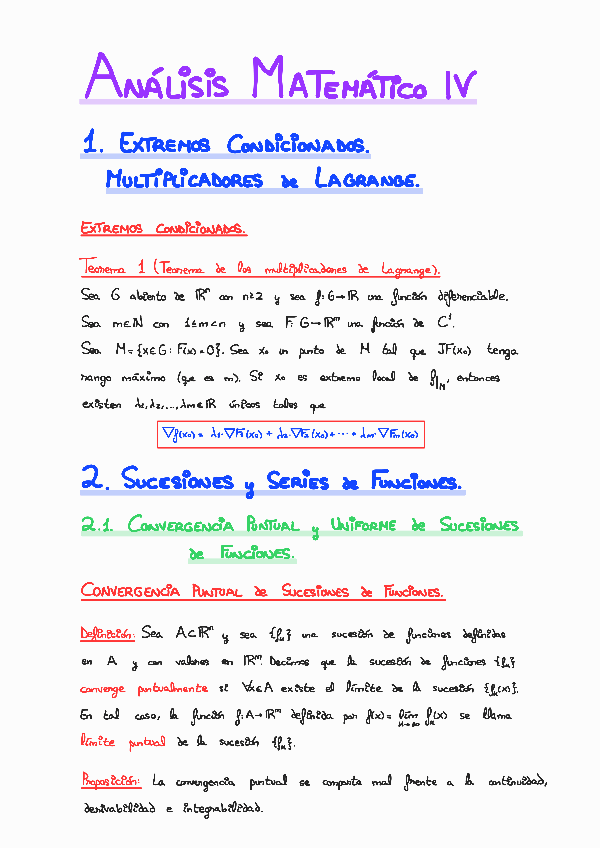 ANÁLISIS MATEMÁTICO IV
1. EXTREMOS CONDICIONADOS.
MULTIPLICADORES de LAGRANGE.
EXTREMOS CONDICIONADOS.
Teorema 1 (Teorema de los multiplicadores de Lagrange).
Sea G abierto de ℝⁿ con n≥2 y sea f: G→ℝ una función diferenciable.
Sea m∈ℕ con 1≤m<n y sea F: G→ℝᵐ una función de C¹.
Sea M={x∈G: F(x)=0}. Sea x₀ un punto de M tal que JF(x₀) tenga
rango máximo (que es m). Si x₀ es extremo local de f|M, entonces
existen λ₁,λ₂,...,λm∈ℝ únicos tales que
∇f(x₀) = λ₁·∇F₁(x₀) + λ₂·∇F₂(x₀) + ··· + λm·∇Fm(x₀)
2. SUCESIONES y SERIES de FUNCIONES.
2.1. CONVERGENCIA PUNTUAL y UNIFORME de SUCESIONES
de FUNCIONES.
CONVERGENCIA PUNTUAL de SUCESIONES de FUNCIONES.
Definición: Sea A⊂ℝⁿ y sea {fₖ} una sucesión de funciones definidas
en A y con valores en ℝᵐ. Decimos que la sucesión de funciones {fₖ}
converge puntualmente si ∀x∈A existe el límite de la sucesión {fₖ(x)}.
En tal caso, la función f: A→ℝᵐ definida por f(x)= lím k→∞ fₖ(x) se llama
límite puntual de la sucesión {fₖ}.
Proposición: La convergencia puntual se comporta mal frente a la continuidad,
derivabilidad e integrabilidad.